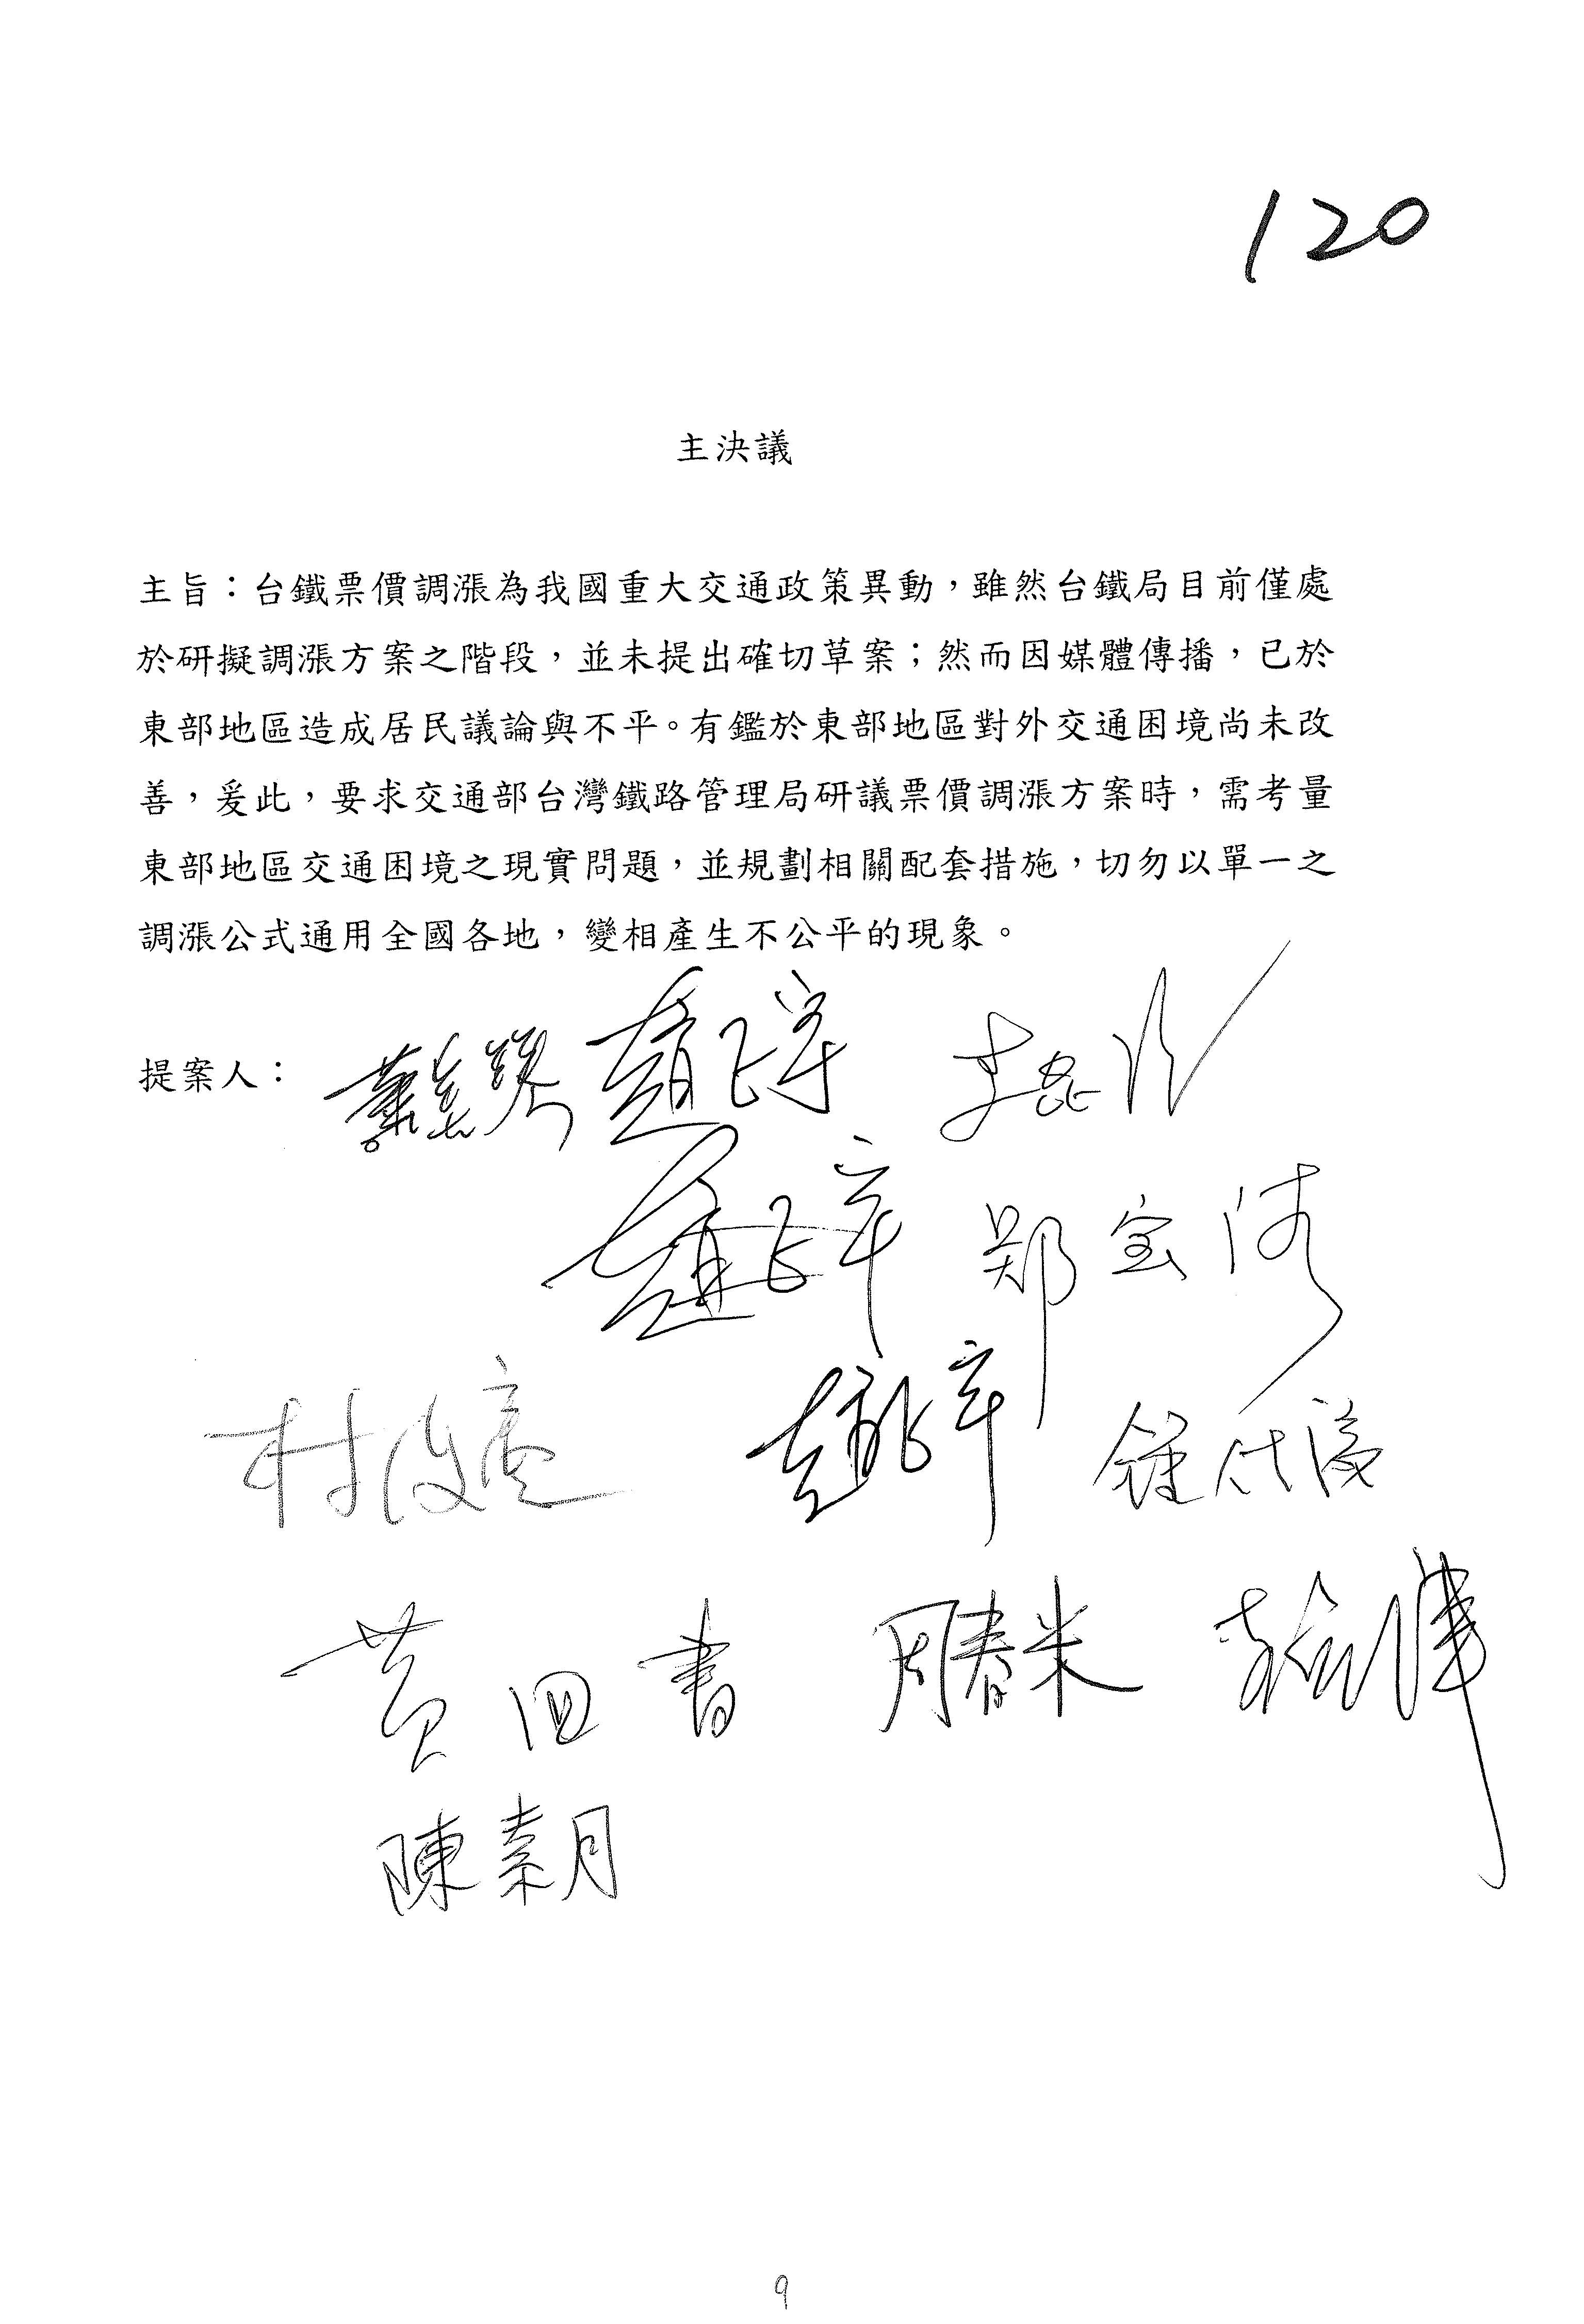 120
主決議
主旨：台鐵票價調漲為我國重大交通政策異動，雖然台鐵局目前僅處
於研擬調漲方案之階段，並未提出確切草案；然而因媒體傳播，已於
東部地區造成居民議論與不平。有鑑於東部地區對外交通困境尚未改
善，爰此，要求交通部台灣鐵路管理局研議票價調漲方案時，需考量
東部地區交通困境之現實問題，並規劃相關配套措施，切勿以單一之
調漲公式通用全國各地，變相產生不公平的現象。
提案人：
鄭宝清
黃國書 周春米
陳素月
9